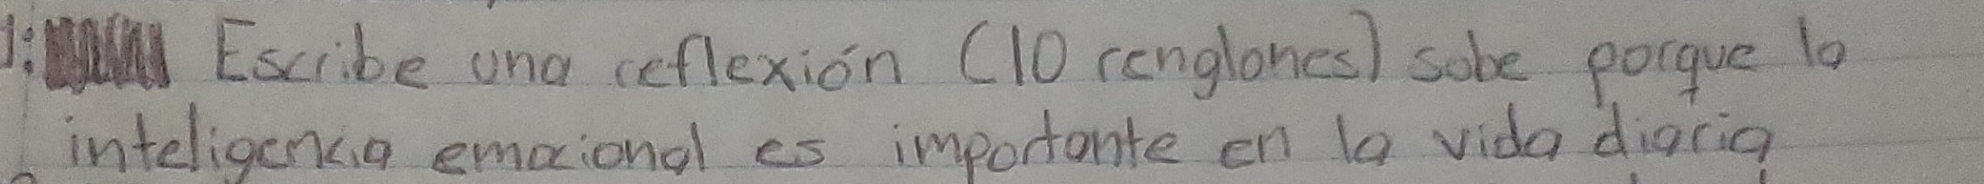 1: Escribe una reflexión (10 renglones) sobe porque la
inteligencia emocional es importante en la vida diaria